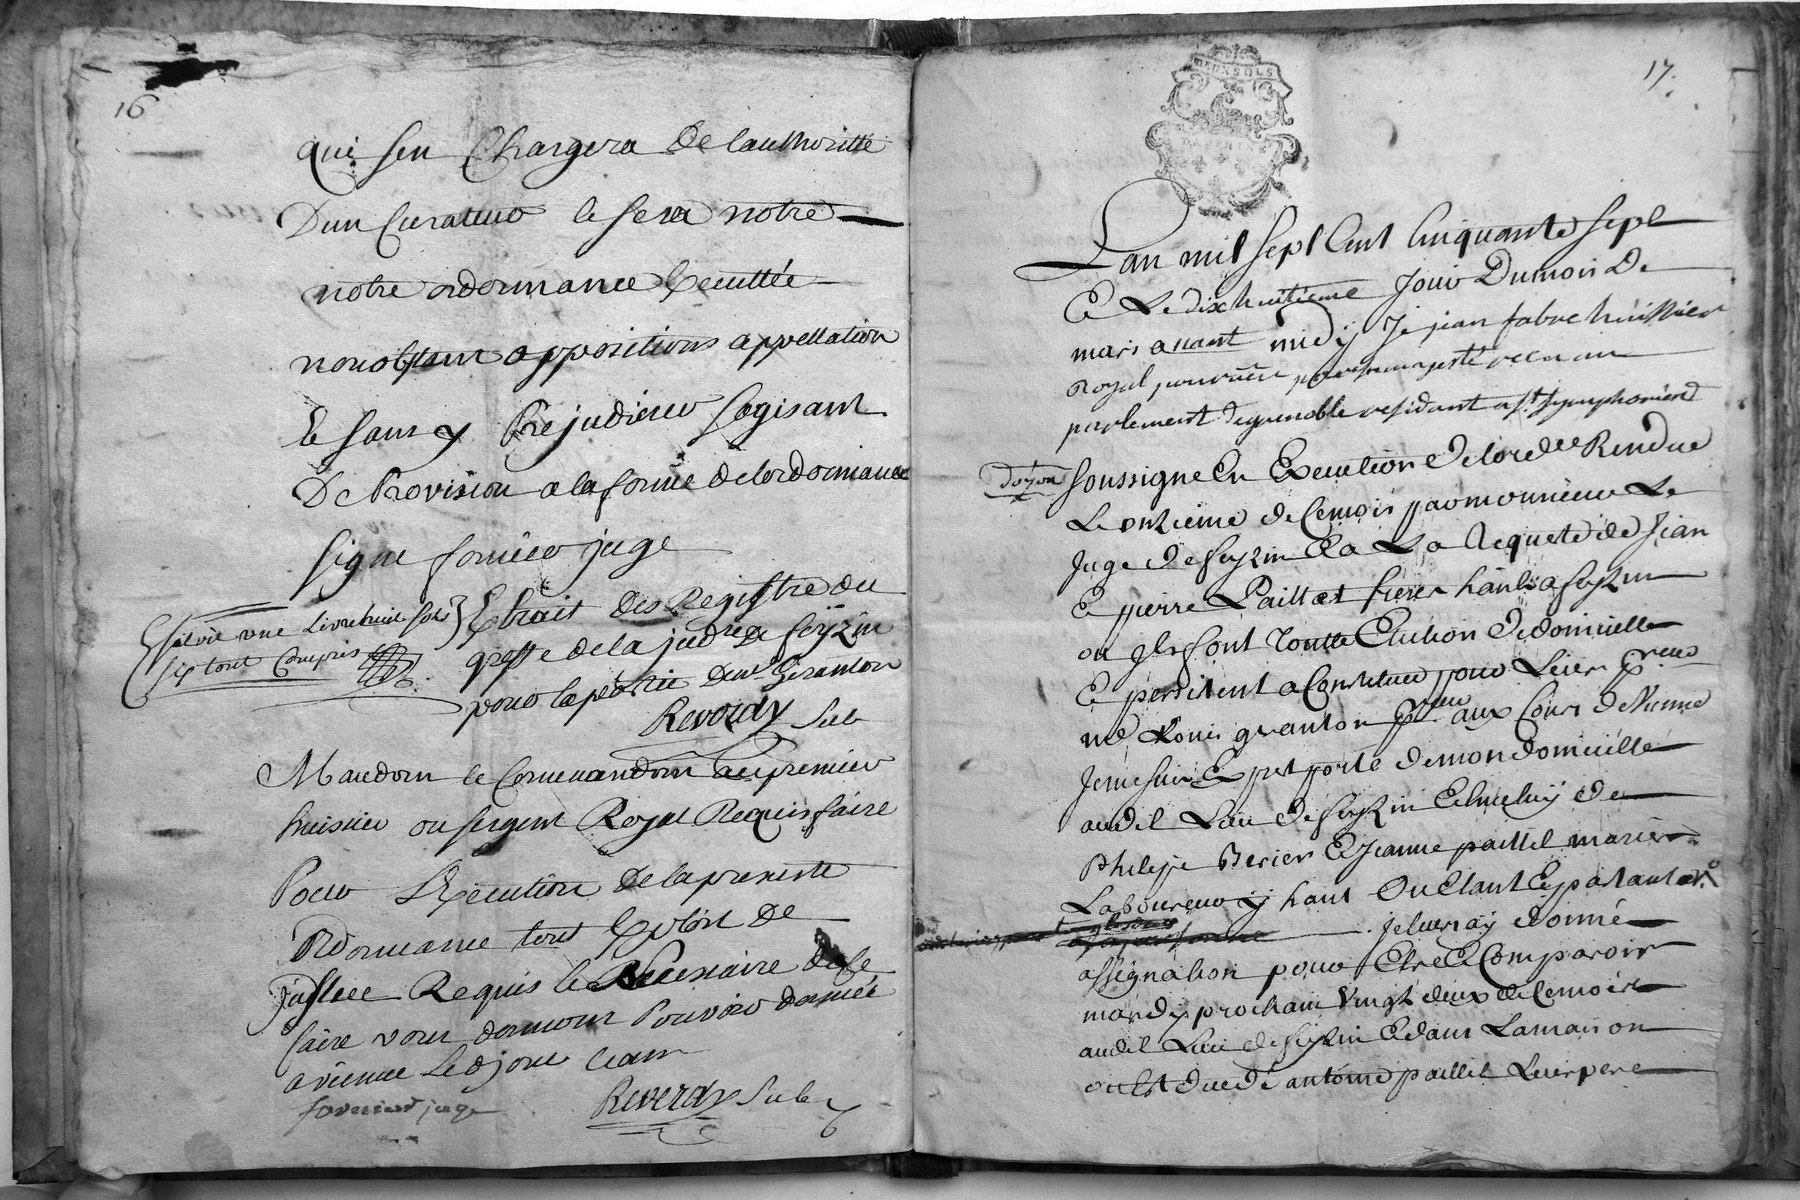 16
qui sen Chargera De lauthoritté
Dun Curateur le sera notre
notre ordonnance Executtée
nonobstant oppositions appellation
Et sans y Préjudicier sagisant
De Provision a la forme de lordonnance
signe fornier juge
Extrait des Registre du
greffe de la jud^re de seÿzin
pour la partie Dem^r Geranton
Reverdy sub
une Livre huit sols
six tout Compris
Mandons le Commandons au premier
huissier ou sergent Royal Requis faire
Pour LExecution de la presente
Ordonnance tout Exploit De
Justice Requis le Necessaire de ce
faire vous donnons Pouvoir donné
a vienne Led jour Et an
fornier juge
Reverdy sub
17.
DEUX SOLS
DAUPHINE
Lan mil sept Cent Cinquante sept
Et Le dix huitieme Jour Dumois De
mars avant midy Je jean fabre huissier
Royal par sa majesté
parlement de grenoble residant a s^t symphorien d
doyon
soussigne En Execution De lorde Rendue
Le onzieme de Cemois par monsieur Le
Juge de seyzin Et a La Requete de Jean
Et pierre Paillet freres hānts a seyzin
ou Jls font Toutte Election De domicille
Et persitent a Constituer pour Leur P^reur
m^e Louis granton P^reur aux Cours de Vienne
Jeme suis Exprt porté demon domicille
audit Lieu de seyzin Et
Philipe Et Jeanne paillet mariés
Laboureur y hant Ou Etant Et parlant a
Jeleur ay donné
assignation pour Etre Et Comparoir
mardy prochain Vingt deux de Cemois
audit Lieu de seyzin Et dans Lamaison
ou Est decedé antoine paillet Leur pere